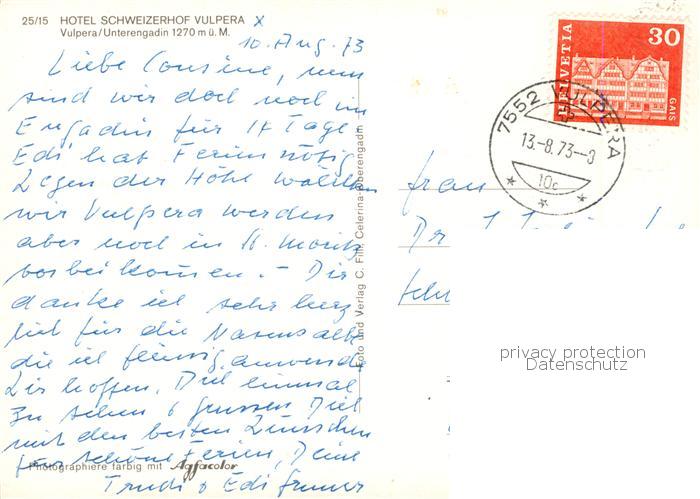 25/15 HOTEL SCHWEIZERHOF VULPERA x
Vulpera/Unterengadin 1270 m ü. M.
10. Aug. 73
Liebe Cousine, nun
sind wir doch noch im
Engadin für 14 Tage
Edi hat Ferien nötig
Wegen der Höhe wählten
wir Vulpera werden
aber noch in St. Moritz
vorbei kommen. – Dir
danke ich sehr herz
lich für die Nasensalbe
die ich fleissig anwende
Wir hoffen, Dich einmal
zu sehen & grüssen Dich
mit den besten Wünschen
für schöne Ferien, Deine
Trudi & Edi
Photographiere farbig mit Agfacolor
Foto und Verlag C. Filli, Celerina/Oberengadin
HELVETIA 30
GAIS
7552 VULPERA
13.-8.73--8
10c
Frau
Dr.
privacy protection
Datenschutz